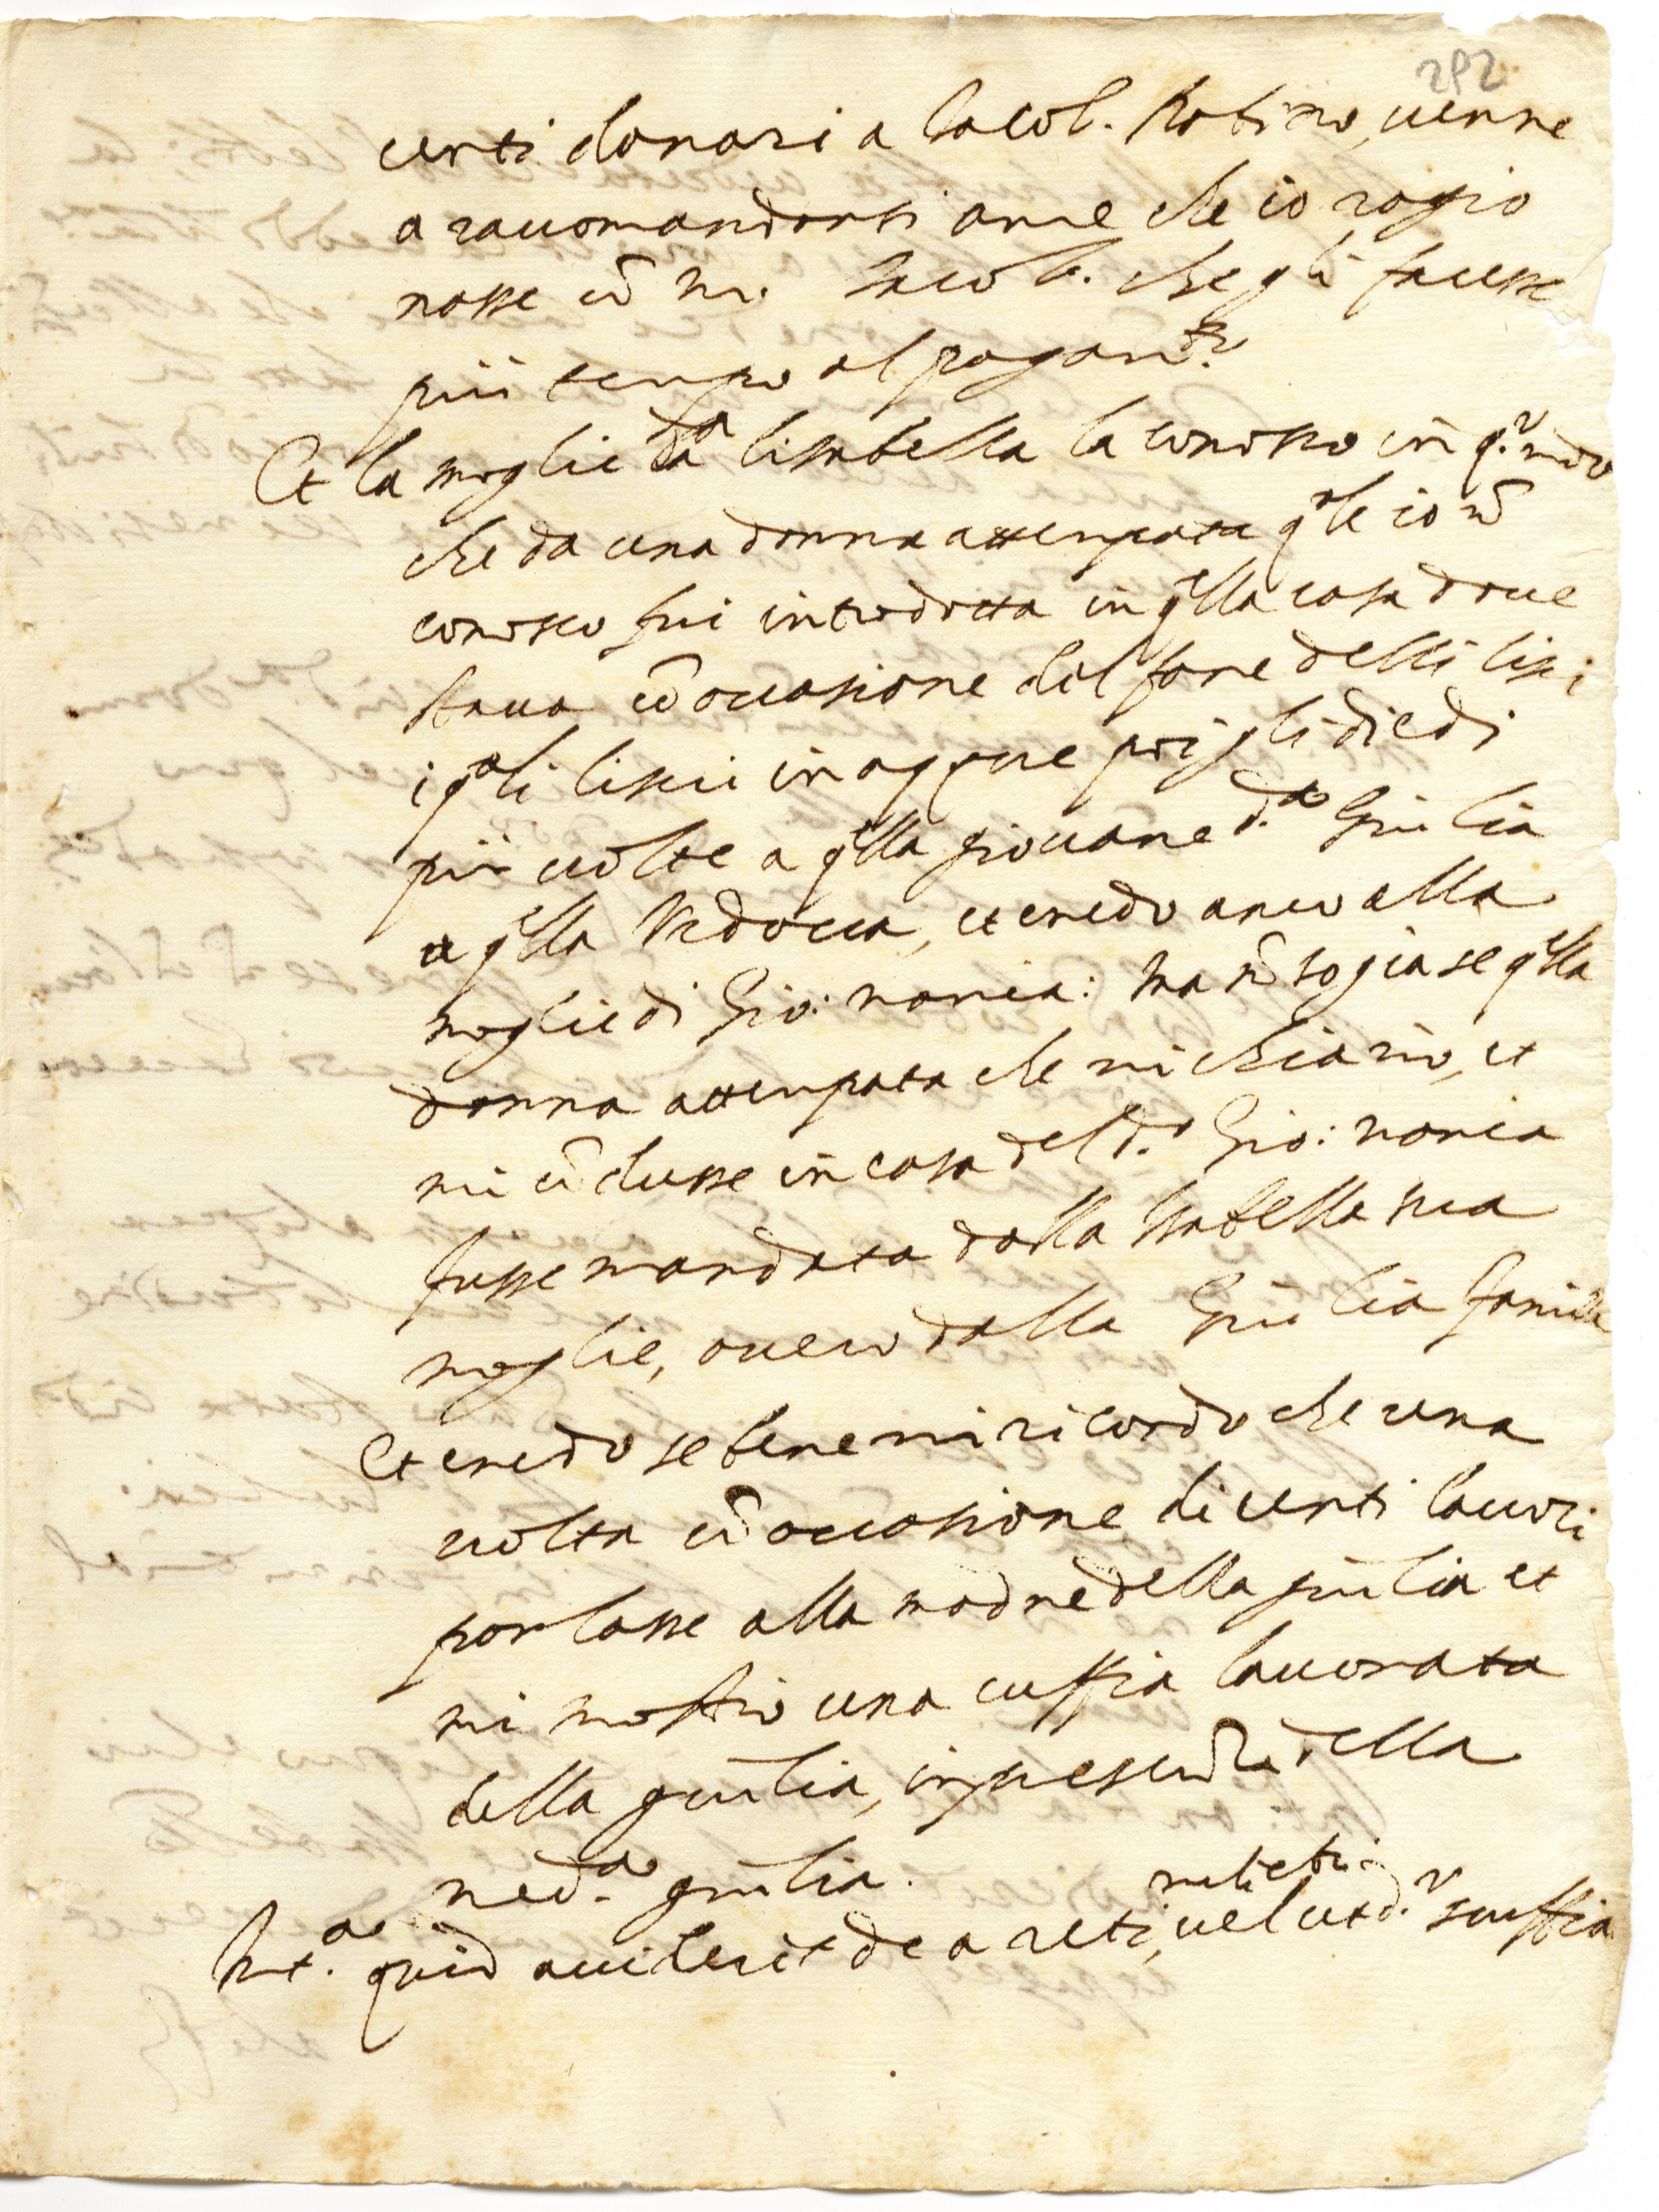 292
certi danari a Jacob. Robino, venne
a raccomandarsi a me che io ragio
nasse cō m. Jacob. che gli facesse
più tempo al pagam.to
Et la moglie d.a lisabella la conosco in q.o modo
che da una donna attempata q.le io nō
conosco fui introdotta in q.lla casa dove
stava cō occasione del fare delli lisci
i q.ali lisci in acque poi gli diedi
più volte a q.lla giovane d.a Giulia
a q.lla Vedova, et credo anco alla
moglie di Gio: maria: ma nō so gia se q.lla
donna attempata che mi chiamò, et
mi cōdusse in casa del d.o Gio: maria
fusse mandata dalla Isabella sua
moglie, overo dalla Giulia
Et credo se bene mi ricordo che una
volta cō occasione di certi lavori
parlasse alla madre della giulia et
mi mostrò una cuffia lavorata
della giulia, in presentia della
med.a giulia.
Int.a quid